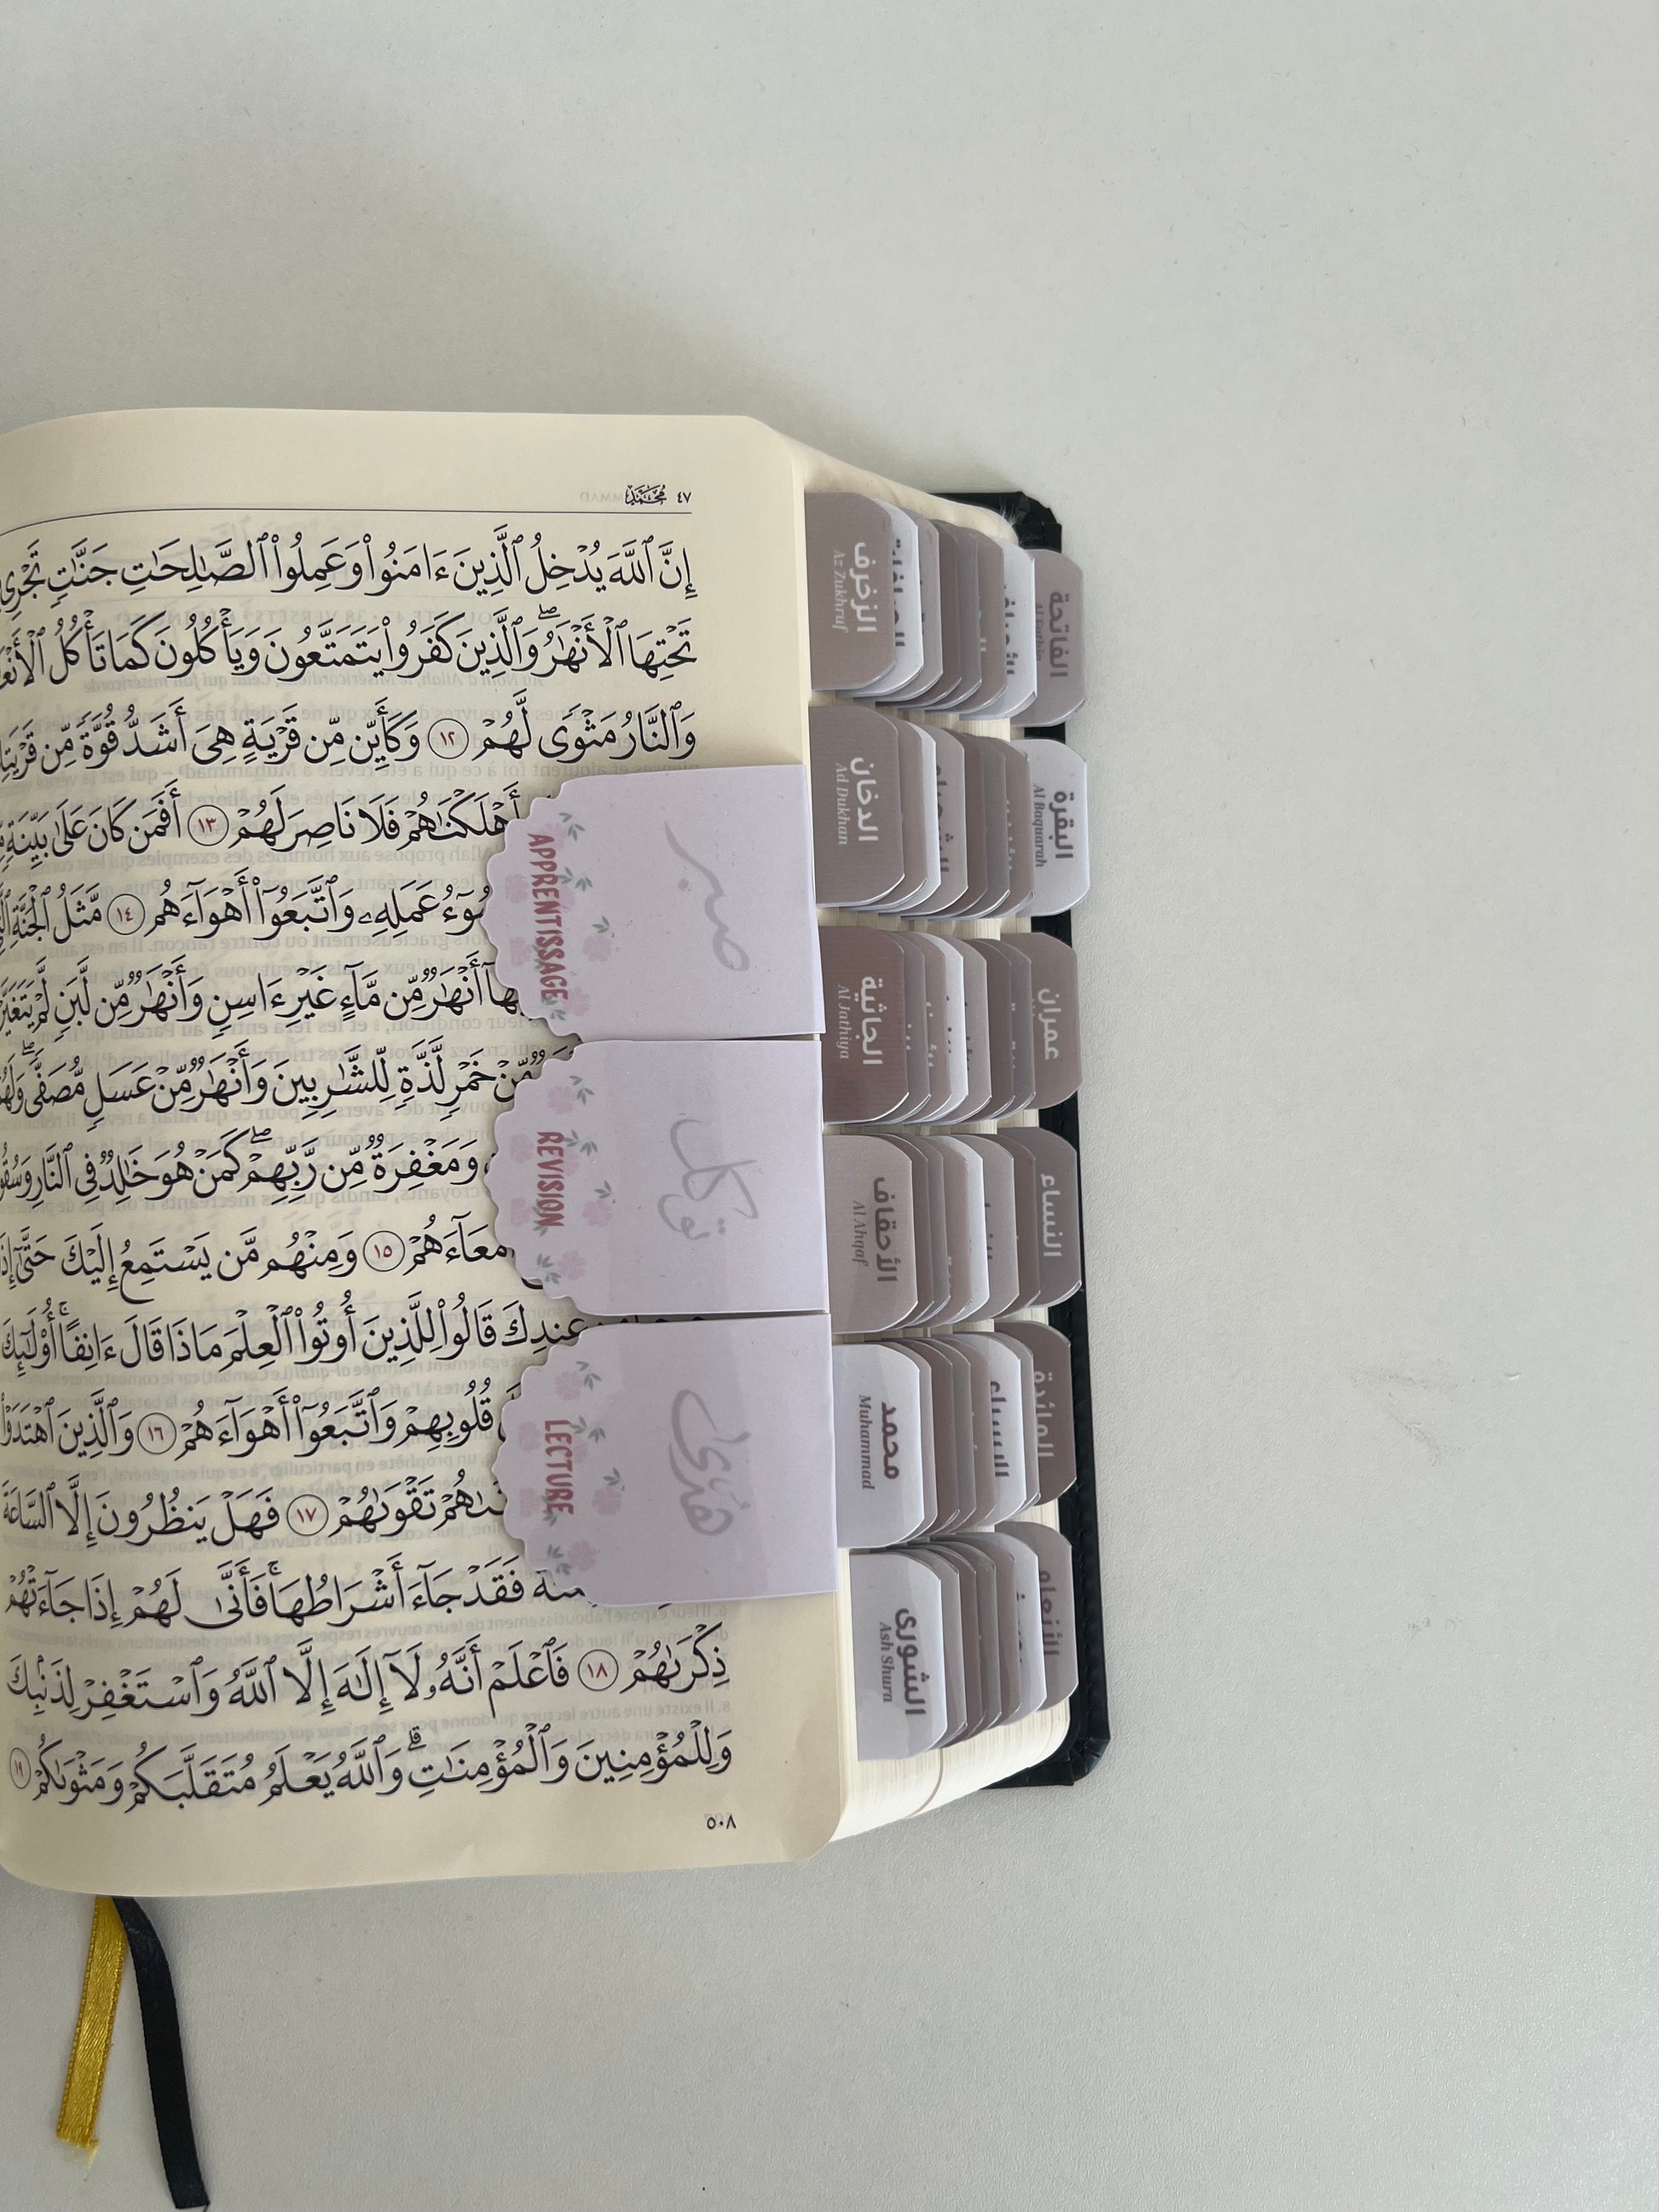 ٤٧ مُحَمَّد
إِنَّ ٱللَّهَ يُدْخِلُ ٱلَّذِينَ ءَامَنُوا۟ وَعَمِلُوا۟ ٱلصَّـٰلِحَـٰتِ جَنَّـٰتٍ تَجْرِى
تَحْتِهَا ٱلْأَنْهَـٰرُ ۖ وَٱلَّذِينَ كَفَرُوا۟ يَتَمَتَّعُونَ وَيَأْكُلُونَ كَمَا تَأْكُلُ
وَٱلنَّارُ مَثْوًى لَّهُمْ ١٢ وَكَأَيِّن مِّن قَرْيَةٍ هِىَ أَشَدُّ قُوَّةً مِّن
أَهْلَكْنَـٰهُمْ فَلَا نَاصِرَ لَهُمْ ١٣ أَفَمَن كَانَ عَلَىٰ بَيِّنَةٍ
عَمَلِهِۦ وَٱتَّبَعُوٓا۟ أَهْوَآءَهُم ١٤ مَّثَلُ ٱلْجَنَّةِ
أَنْهَـٰرٌ مِّن مَّآءٍ غَيْرِ ءَاسِنٍ وَأَنْهَـٰرٌ مِّن لَّبَنٍ لَّمْ
مِّنْ خَمْرٍ لَّذَّةٍ لِّلشَّـٰرِبِينَ وَأَنْهَـٰرٌ مِّنْ عَسَلٍ مُّصَفًّى
وَمَغْفِرَةٌ مِّن رَّبِّهِمْ ۖ كَمَنْ هُوَ خَـٰلِدٌ فِى ٱلنَّارِ
١٥ وَمِنْهُم مَّن يَسْتَمِعُ إِلَيْكَ حَتَّىٰٓ
عِندِكَ قَالُوا۟ لِلَّذِينَ أُوتُوا۟ ٱلْعِلْمَ مَاذَا قَالَ ءَانِفًا ۚ أُو۟لَـٰٓئِكَ
قُلُوبِهِمْ وَٱتَّبَعُوٓا۟ أَهْوَآءَهُمْ ١٦ وَٱلَّذِينَ ٱهْتَدَوْا۟
تَقْوَىٰهُمْ ١٧ فَهَلْ يَنظُرُونَ إِلَّا ٱلسَّاعَةَ
فَقَدْ جَآءَ أَشْرَاطُهَا ۚ فَأَنَّىٰ لَهُمْ إِذَا جَآءَتْهُمْ
ذِكْرَىٰهُمْ ١٨ فَٱعْلَمْ أَنَّهُۥ لَآ إِلَـٰهَ إِلَّا ٱللَّهُ وَٱسْتَغْفِرْ لِذَنۢبِكَ
وَلِلْمُؤْمِنِينَ وَٱلْمُؤْمِنَـٰتِ ۗ وَٱللَّهُ يَعْلَمُ مُتَقَلَّبَكُمْ وَمَثْوَىٰكُمْ ١٩
٥٠٨
صبر
APPRENTISSAGE
توكل
REVISION
هدى
LECTURE
الزخرف
Az Zukhruf
الدخان
Ad Dukhan
الجاثية
Al Jathiya
الأحقاف
Al Ahqaf
محمد
Muhammad
الشورى
Ash Shura
الفاتحة
البقرة
Al Baquarah
عمران
النساء
المائدة
الأنعام